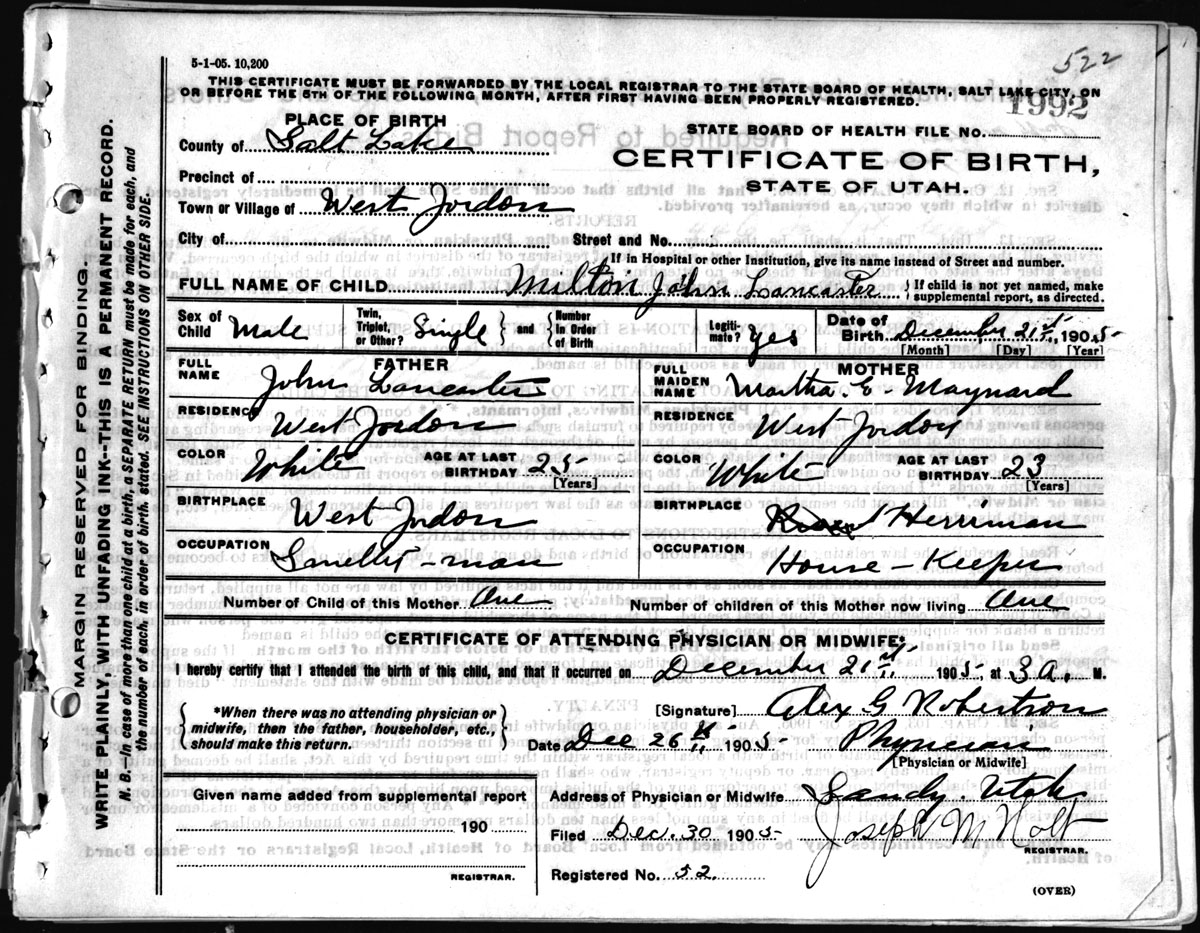 522
5-1-05. 10,200
THIS CERTIFICATE MUST BE FORWARDED BY THE LOCAL REGISTRAR TO THE STATE BOARD OF HEALTH, SALT LAKE CITY, ON
OR BEFORE THE 5TH OF THE FOLLOWING MONTH, AFTER FIRST HAVING BEEN PROPERLY REGISTERED.
1992
PLACE OF BIRTH
STATE BOARD OF HEALTH FILE NO.
County of Salt Lake
CERTIFICATE OF BIRTH,
STATE OF UTAH.
Precinct of
Town or Village of West Jordon
City of Street and No.
If in Hospital or other Institution, give its name instead of Street and number.
FULL NAME OF CHILD Milton John Lancaster { If child is not yet named, make supplemental report, as directed.
Sex of Child Male Twin, Triplet, or Other? Single } and { Number in Order of Birth Legiti- mate? Yes Date of Birth December 21st, 1905
[Month] [Day] [Year]
FATHER
FULL NAME John Lancaster
RESIDENCE West Jordon
COLOR White AGE AT LAST BIRTHDAY 25
[Years]
BIRTHPLACE West Jordon
OCCUPATION Smelter-man
MOTHER
FULL MAIDEN NAME Martha E. Maynard
RESIDENCE West Jordon
COLOR White AGE AT LAST BIRTHDAY 23
[Years]
BIRTHPLACE Herriman
OCCUPATION House-Keeper
Number of Child of this Mother One Number of children of this Mother now living One
CERTIFICATE OF ATTENDING PHYSICIAN OR MIDWIFE:
I hereby certify that I attended the birth of this child, and that it occurred on December 21st 1905, at 3 a. M.
{ *When there was no attending physician or
midwife, then the father, householder, etc.,
should make this return. }
[Signature] Alex G Robertson
Date Dec 26th 1905 Physician
[Physician or Midwife]
Given name added from supplemental report
190
REGISTRAR.
Address of Physician or Midwife Sandy. Utah
Filed Dec. 30 1905 Joseph M Holt
REGISTRAR.
Registered No. 52.
(OVER)
MARGIN RESERVED FOR BINDING.
WRITE PLAINLY, WITH UNFADING INK—THIS IS A PERMANENT RECORD.
N. B.—In case of more than one child at a birth, a SEPARATE RETURN must be made for each, and
the number of each, in order of birth, stated. SEE INSTRUCTIONS ON OTHER SIDE.